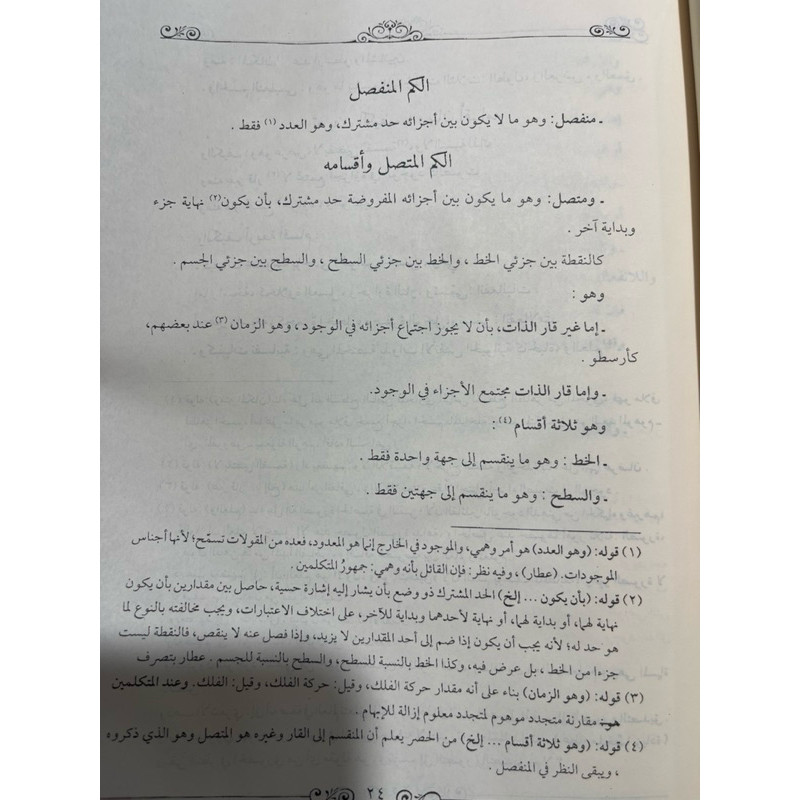 الكم المنفصل
ـ منفصل: وهو ما لا يكون بين أجزائه حد مشترك، وهو العدد (١) فقط .
الكم المتصل وأقسامه
ـ ومتصل: وهو ما يكون بين أجزائه المفروضة حد مشترك، بأن يكون(٢) نهاية جزء
وبداية آخر .
كالنقطة بين جزئي الخط ، والخط بين جزئي السطح ، والسطح بين جزئي الجسم .
وهو :
ـ إما غير قار الذات، بأن لا يجوز اجتماع أجزائه في الوجود ، وهو الزمان (٣) عند بعضهم،
كأرسطو .
ـ وإما قار الذات مجتمع الأجزاء في الوجود.
وهو ثلاثة أقسام (٤):
ـ الخط : وهو ما ينقسم إلى جهة واحدة فقط .
ـ والسطح : وهو ما ينقسم إلى جهتين فقط .
(١) قوله: (وهو العدد) هو أمر وهمي، والموجود في الخارج إنما هو المعدود، فعده من المقولات تسمّح؛ لأنها أجناس
الموجودات. (عطار) ، وفيه نظر: فإن القائل بأنه وهمي: جمهورُ المتكلمين .
(٢) قوله: (بأن يكون ... إلخ) الحد المشترك ذو وضع بأن يشار إليه إشارة حسية، حاصل بين مقدارين بأن يكون
نهاية لهما، أو بداية لهما، أو نهاية لأحدهما وبداية للآخر، على اختلاف الاعتبارات، ويجب مخالفته بالنوع لما
هو حد له؛ لأنه يجب أن يكون إذا ضم إلى أحد المقدارين لا يزيد، وإذا فصل عنه لا ينقص، فالنقطة ليست
جزءا من الخط ، بل عرض فيه، وكذا الخط بالنسبة للسطح، والسطح بالنسبة للجسم . عطار بتصرف
(٣) قوله: (وهو الزمان) بناء على أنه مقدار حركة الفلك، وقيل: حركة الفلك، وقيل: الفلك. وعند المتكلمين
هو: مقارنة متجدد موهوم لمتجدد معلوم إزالة للإبهام .
(٤) قوله: (وهو ثلاثة أقسام ... إلخ) من الحصر يعلم أن المنقسم إلى القار وغيره هو المتصل وهو الذي ذكروه
، ويبقى النظر في المنفصل .
٢٤